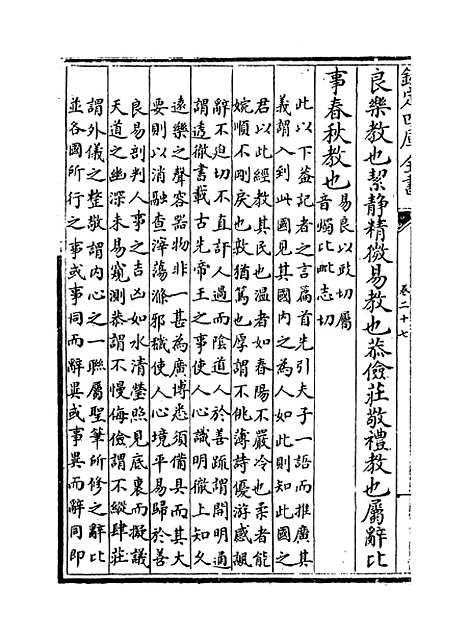 欽定四庫全書
卷二十七
良樂教也絜靜精微易教也恭儉莊敬禮教也屬辭比
事春秋教也易良以豉切屬
音燭比毗志切
此以下蓋記者之言篇首先引夫子一語而推廣其
義謂入到此國見其國内之為人如此則知此國之
君以此經教其民也溫者如春陽不嚴冷也柔者能
婉順不剛戾也敦猶篤也厚謂不佻薄詩優游感諷
辭不迫切不直訐人過而陰道人於善疏謂開明通
謂透徹書載古先帝王之事使人心識明徹上知久
遠樂之聲容器物非一甚為廣博悉須備具而其大
要則以消融查滓蕩滌邪穢使人心境平易歸於善
良易剖判人事之吉凶如水清瑩照見底裏而擬議
天道之幽深未易窺測恭謂不慢侮儉謂不縱肆莊
謂外儀之整敬謂内心之一聯屬聖筆所修之辭比
並各國所行之事或事同而辭異或事異而辭同即